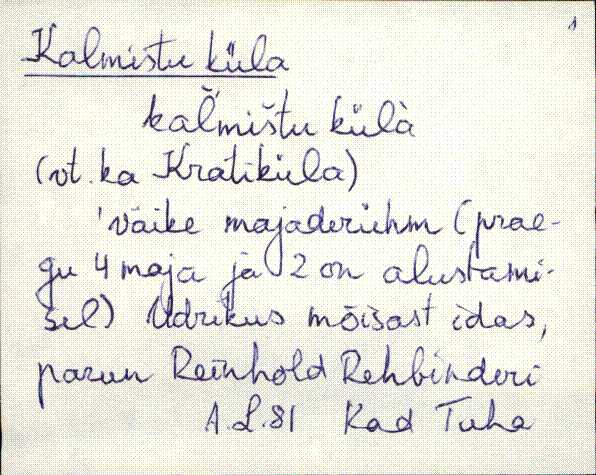 1
Kalmistu küla
kal̆mištu külà
(vt. ka Kratiküla)
'väike majaderühm (prae-
gu 4 maja ja 2 on alustami-
sel) Udrikus mõisast idas,
parun Reinhold Rehbinderi
A.L.81 Kad Tuha